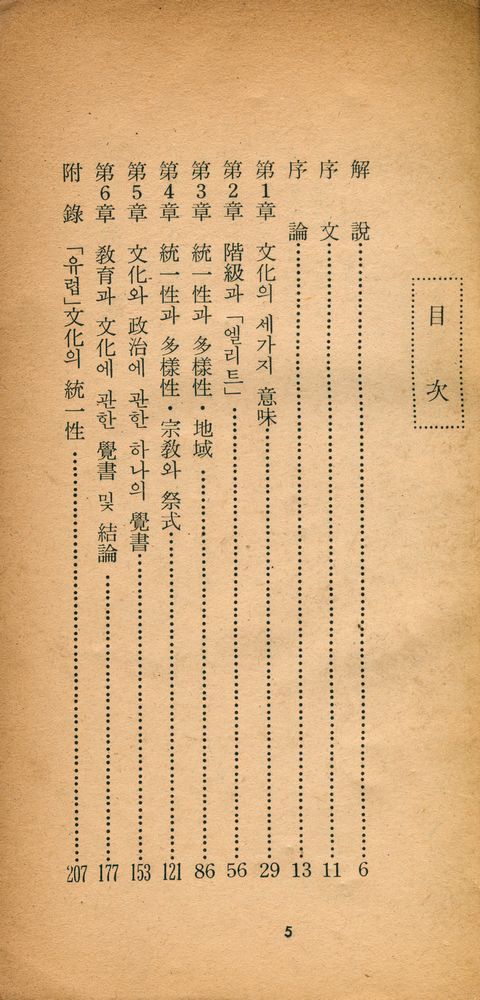 目次
解說 6
序文 11
序論 13
第1章 文化의 세가지 意味 29
第2章 階級과 「엘리트」 56
第3章 統一性과 多樣性・地域 86
第4章 統一性과 多樣性・宗敎와 祭式 121
第5章 文化와 政治에 관한 하나의 覺書 153
第6章 敎育과 文化에 관한 覺書 및 結論 177
附錄 「유럽」文化의 統一性 207
5